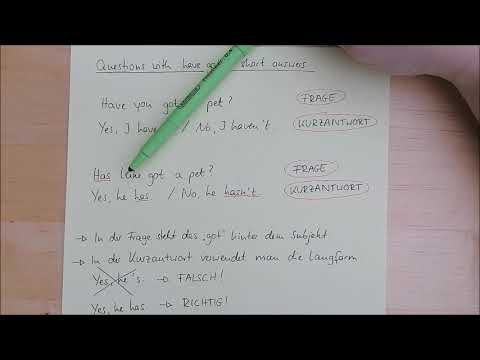 Questions with have got + short answers
Have you got a pet?
FRAGE
Yes, I have / No, I haven't
KURZANTWORT
Has got a pet?
FRAGE
Yes, he has / No, he hasn't
KURZANTWORT
→ In der Frage steht das "got" hinter dem Subjekt
→ In der Kurzantwort verwendet man die Langform
Yes, he's. → FALSCH!
Yes, he has. → RICHTIG!